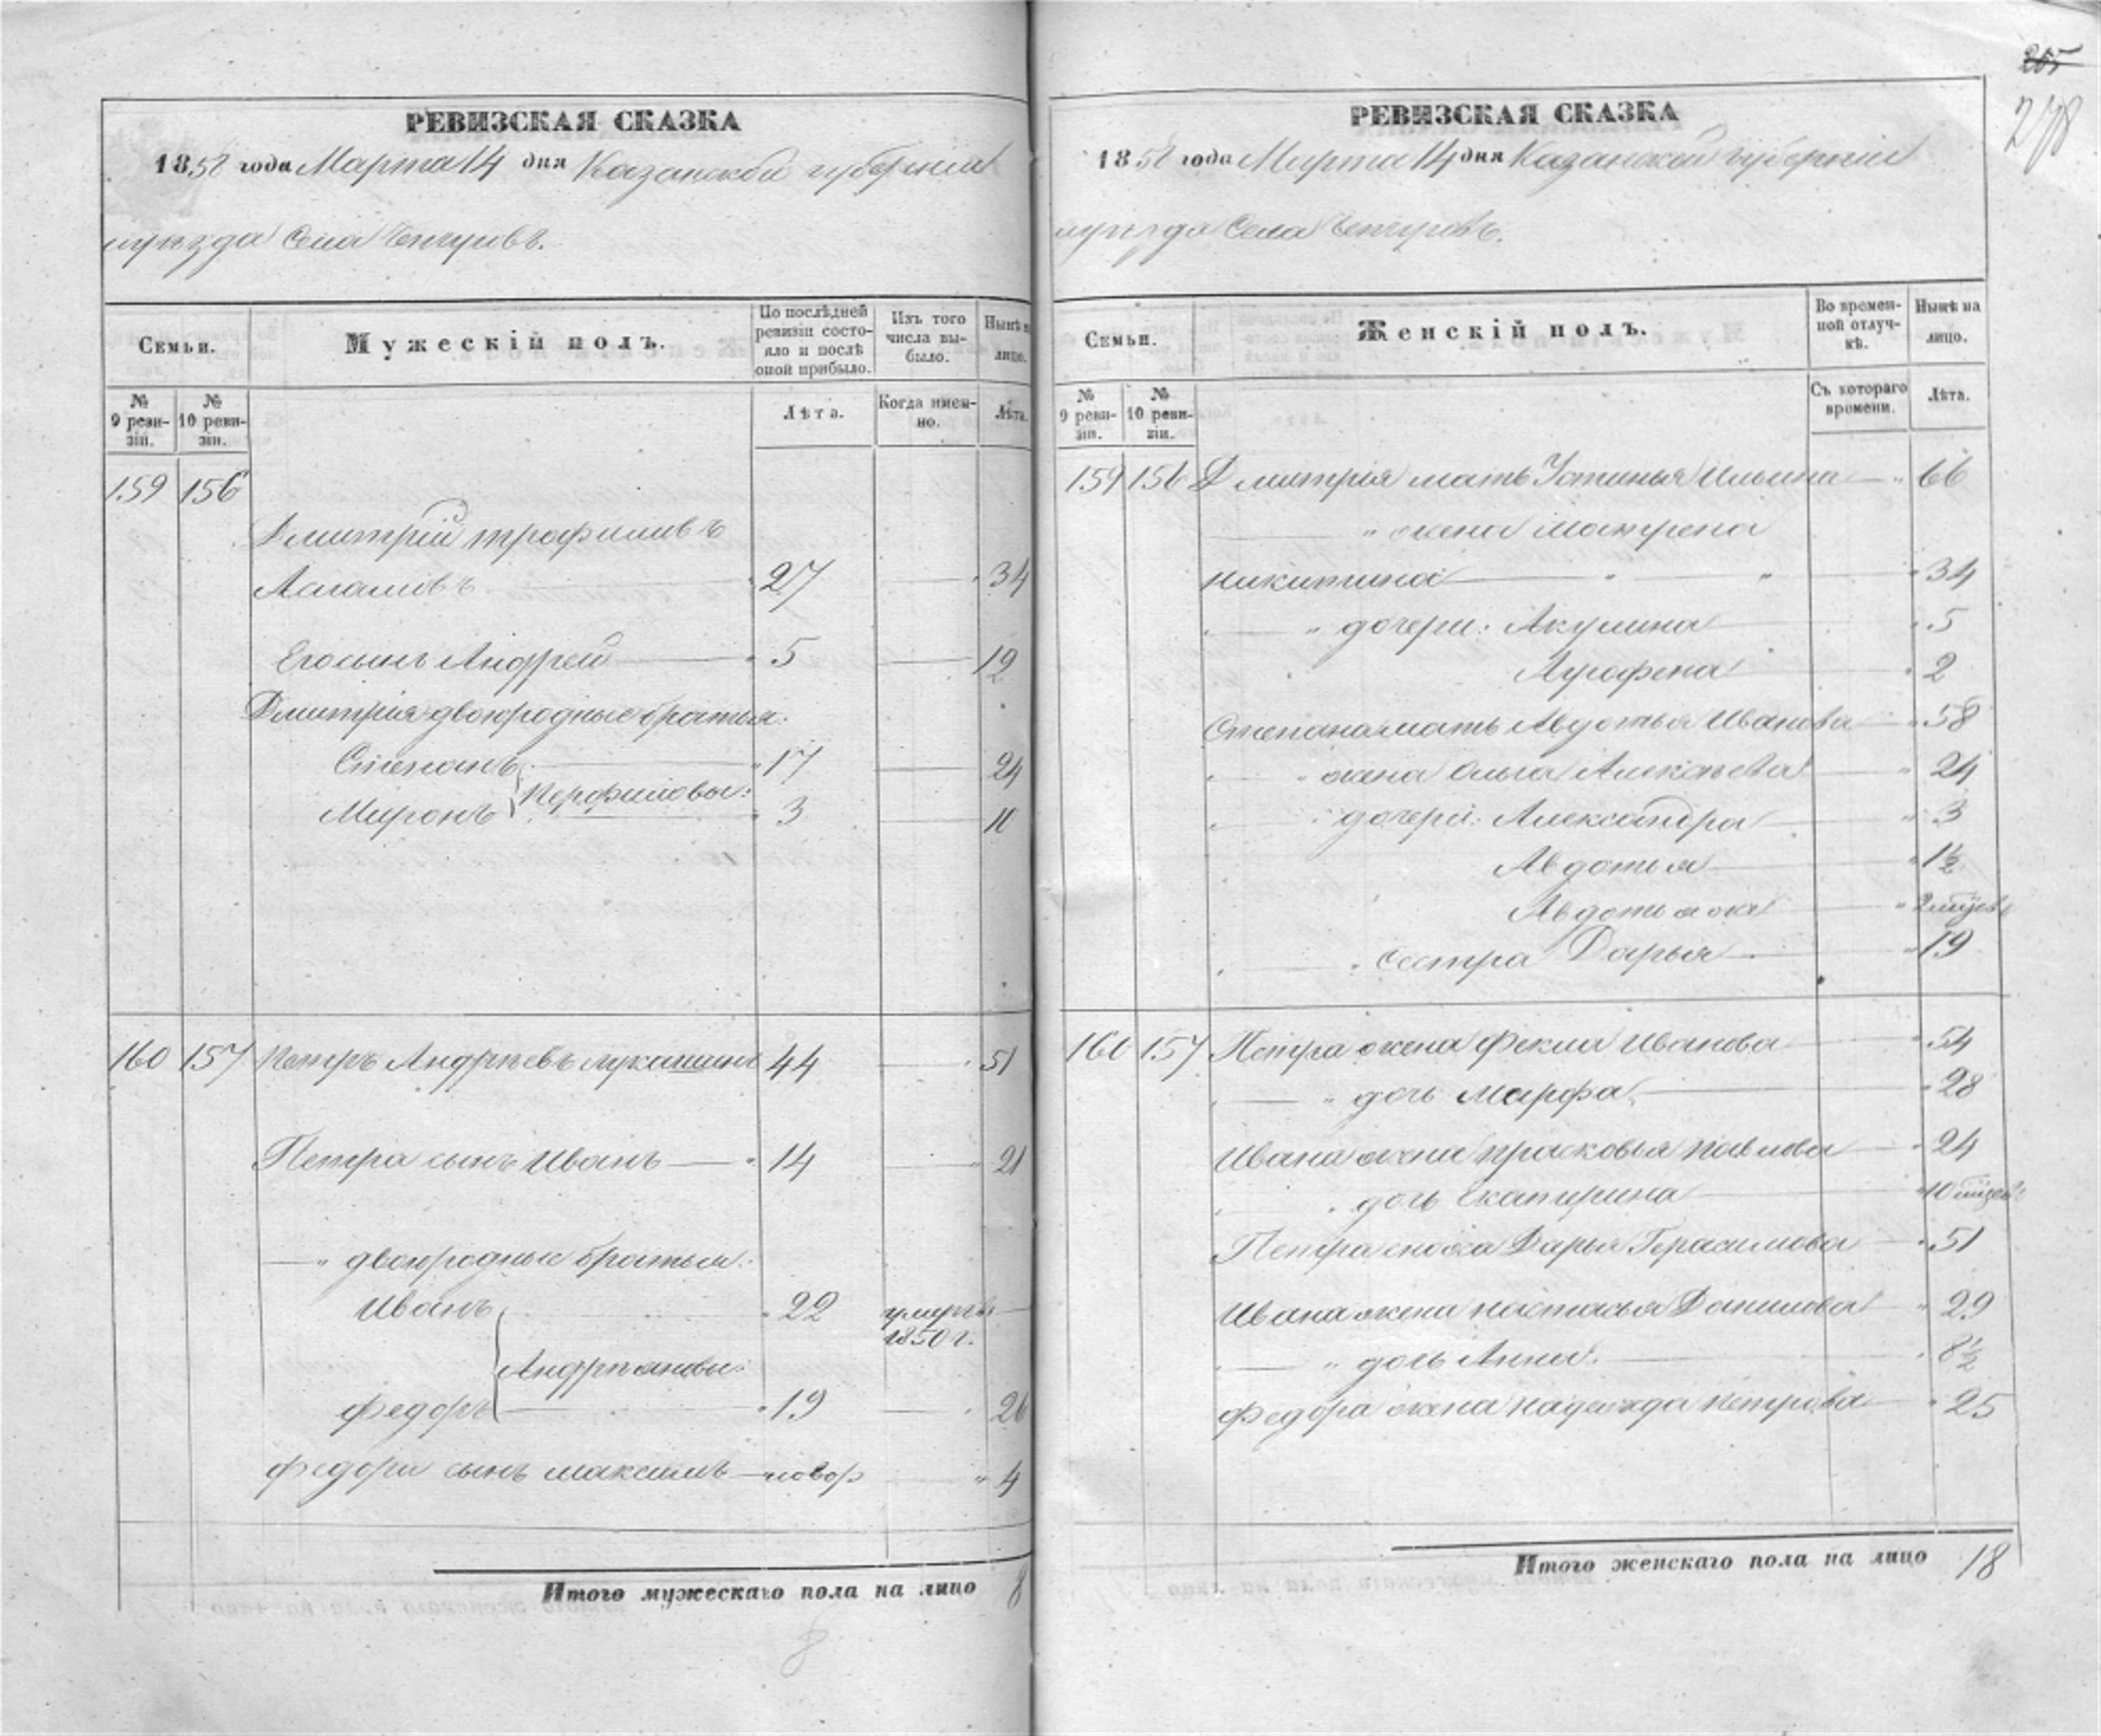 РЕВИЗСКАЯ СКАЗКА
1858 года Марта 14 дня Казанской губерніи
уѣзда Села
Семьи.
Мужескій полъ.
По послѣдней ревизіи состояло и послѣ оной прибыло.
Изъ того числа выбыло.
Нынѣ на лицо.
№ 9 ревизіи.
№ 10 ревизіи.
Лѣта.
Когда именно.
Лѣта.
159 156
Дмитрій Трофимовъ
27 34
Его сынъ Андрей 5 12
Дмитрія двоюродные братья:
Степанъ 17 24
Перфиловы:
Миронъ 3 11
160 157 Петръ Андрѣевъ Лукашинъ 44 51
Петра сынъ Иванъ 14 21
— " двоюродные братья:
Иванъ 22 умеръ
1850 г.
Федоръ 19 26
Федора сынъ Максимъ — новор " 4
Итого мужескаго пола на лицо 8
8
205
278
РЕВИЗСКАЯ СКАЗКА
1858 года Марта 14 дня Казанской губерніи
уѣзда Села
Семьи.
Женскій полъ.
Во временной отлучкѣ.
Нынѣ на лицо.
№ 9 ревизіи.
№ 10 ревизіи.
Съ котораго времени.
Лѣта.
159 156 Дмитрія мать Устинья Ильина — " 66
" жена Матрена
Никитина " " " 34
" дочери: Акулина " 5
Аграфена " 2
Степана мать Авдотья Иванова " 58
" жена Ольга Алексѣева " 24
" дочери: Александра " 3
Авдотья " 1½
Авдотья же " 2 мѣсев
" сестра Дарья " 19
160 157 Петра жена Фекла Иванова " 54
" дочь Марфа " 28
Ивана жена Прасковья Павлова " 24
" дочь Екатерина " 10 мѣсев
Петра сноха Дарья Герасимова " 51
Ивана жена Настасья Данилова " 29
" дочь Анна " 8½
Федора жена Надежда Петрова " 25
Итого женскаго пола на лицо 18